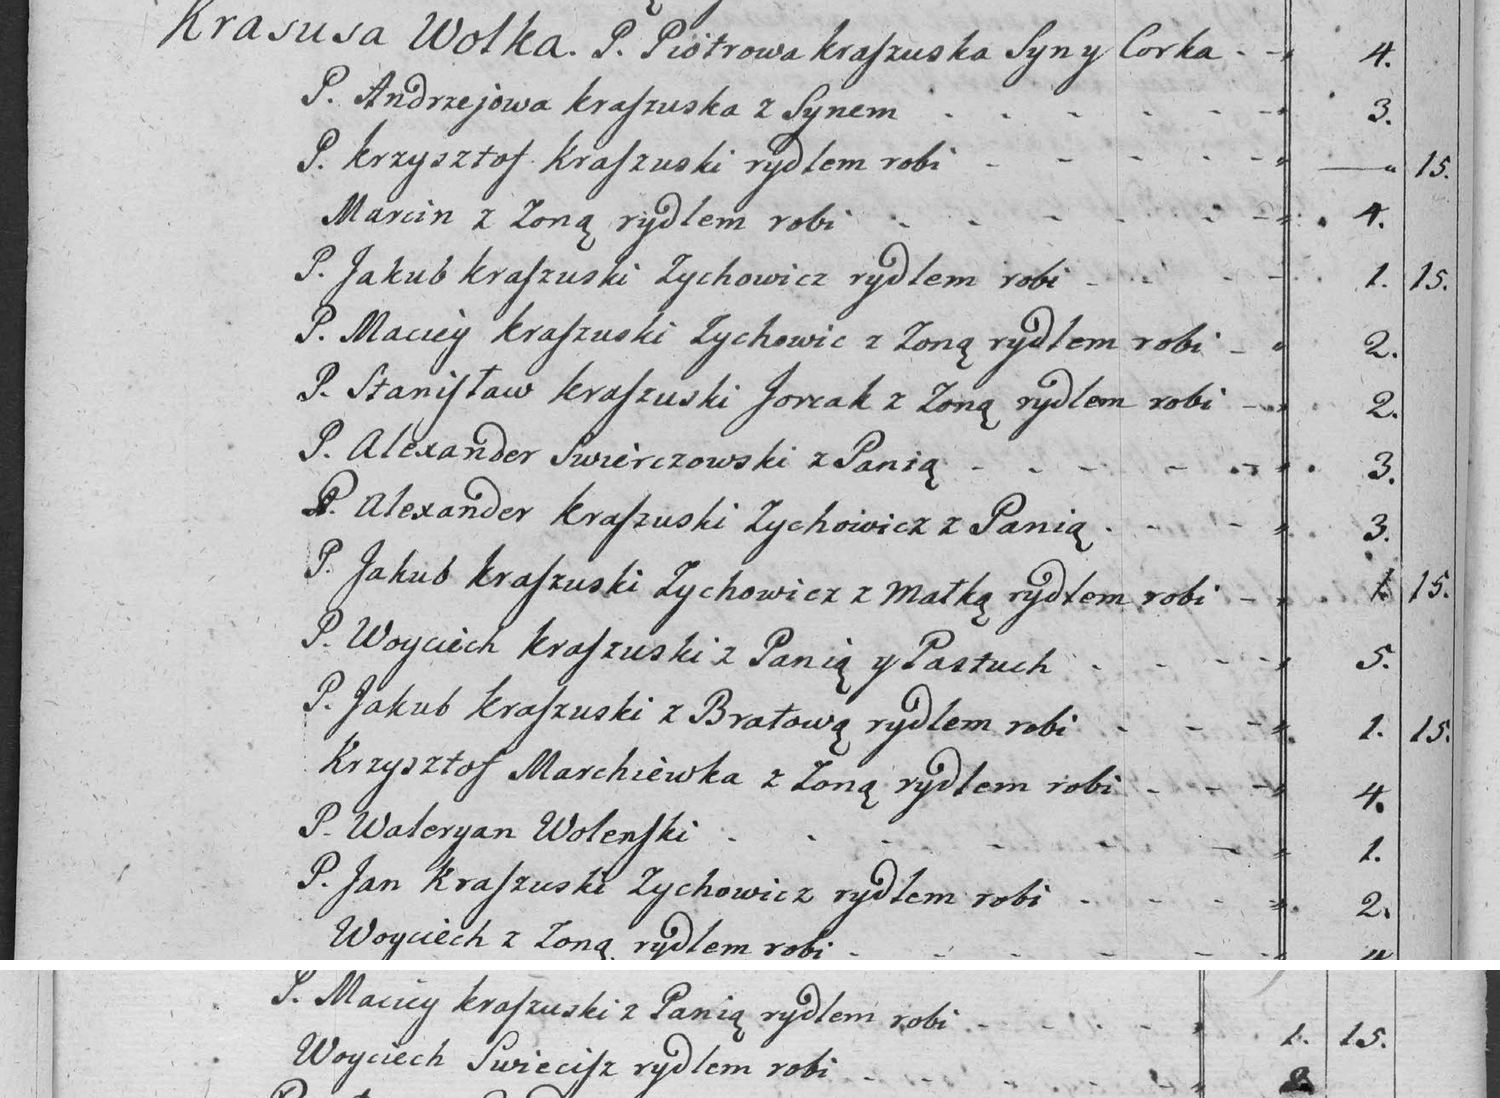 Krasusa Wolka. P. Piotrowa kraszuska Syny Corka - - 4.
P. Andrzejowa kraszuska z Synem - - - - - 3.
P. krzysztof Kraszuski rydlem robi - - - - - — 15.
Marcin z Zoną rydlem robi - - - - - 4.
P. Jakub kraszuski Zychowicz rydlem robi - - - 1. 15.
P. Maciey kraszuski Zychowic z Zoną rydlem robi - 2.
P. Stanisław kraszuski Jorcak z Zoną rydlem robi - 2.
P. Alexander Swierczowski z Panią - - - - - 3.
P. Alexander kraszuski Zychoiwicz z Panią - - - 3.
P. Jakub kraszuski Zychowicz z Matką rydlem robi - 1. 15.
P. Woyciech kraszuski z Panią y Pastuch - - - - 5.
P. Jakub kraszuski z Bratową rydlem robi - - - 1. 15.
Krzysztof Marchiewka z Zoną rydlem robi - - - 4.
P. Waleryan Wolenski - - - - - 1.
P. Jan Kraszuski Zychowicz rydlem robi - - - 2.
Woyciech z Zoną rydlem robi - - - - - 4
P. Maciey kraszuski z Panią rydlem robi - - - - 1. 15.
Woyciech Swiecisz rydlem robi - - - -